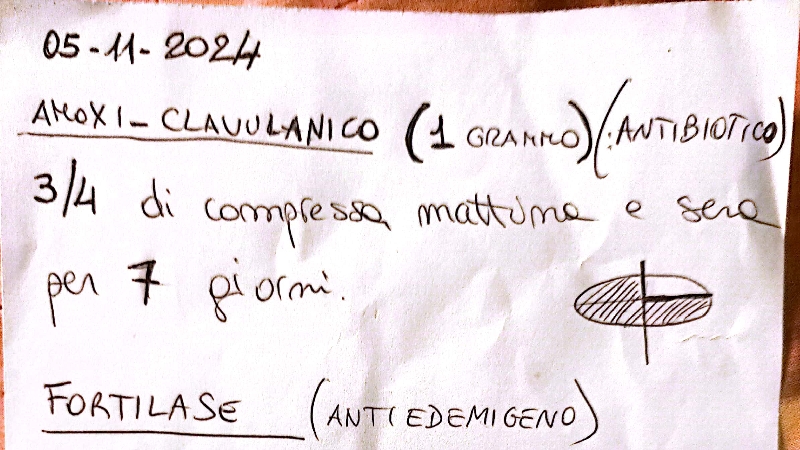 05-11-2024
AMOXI-CLAVULANICO (1 GRAMMO) (:ANTIBIOTICO)
3/4 di compressa mattina e sera
per 7 giorni.
FORTILASE (ANTIEDEMIGENO)